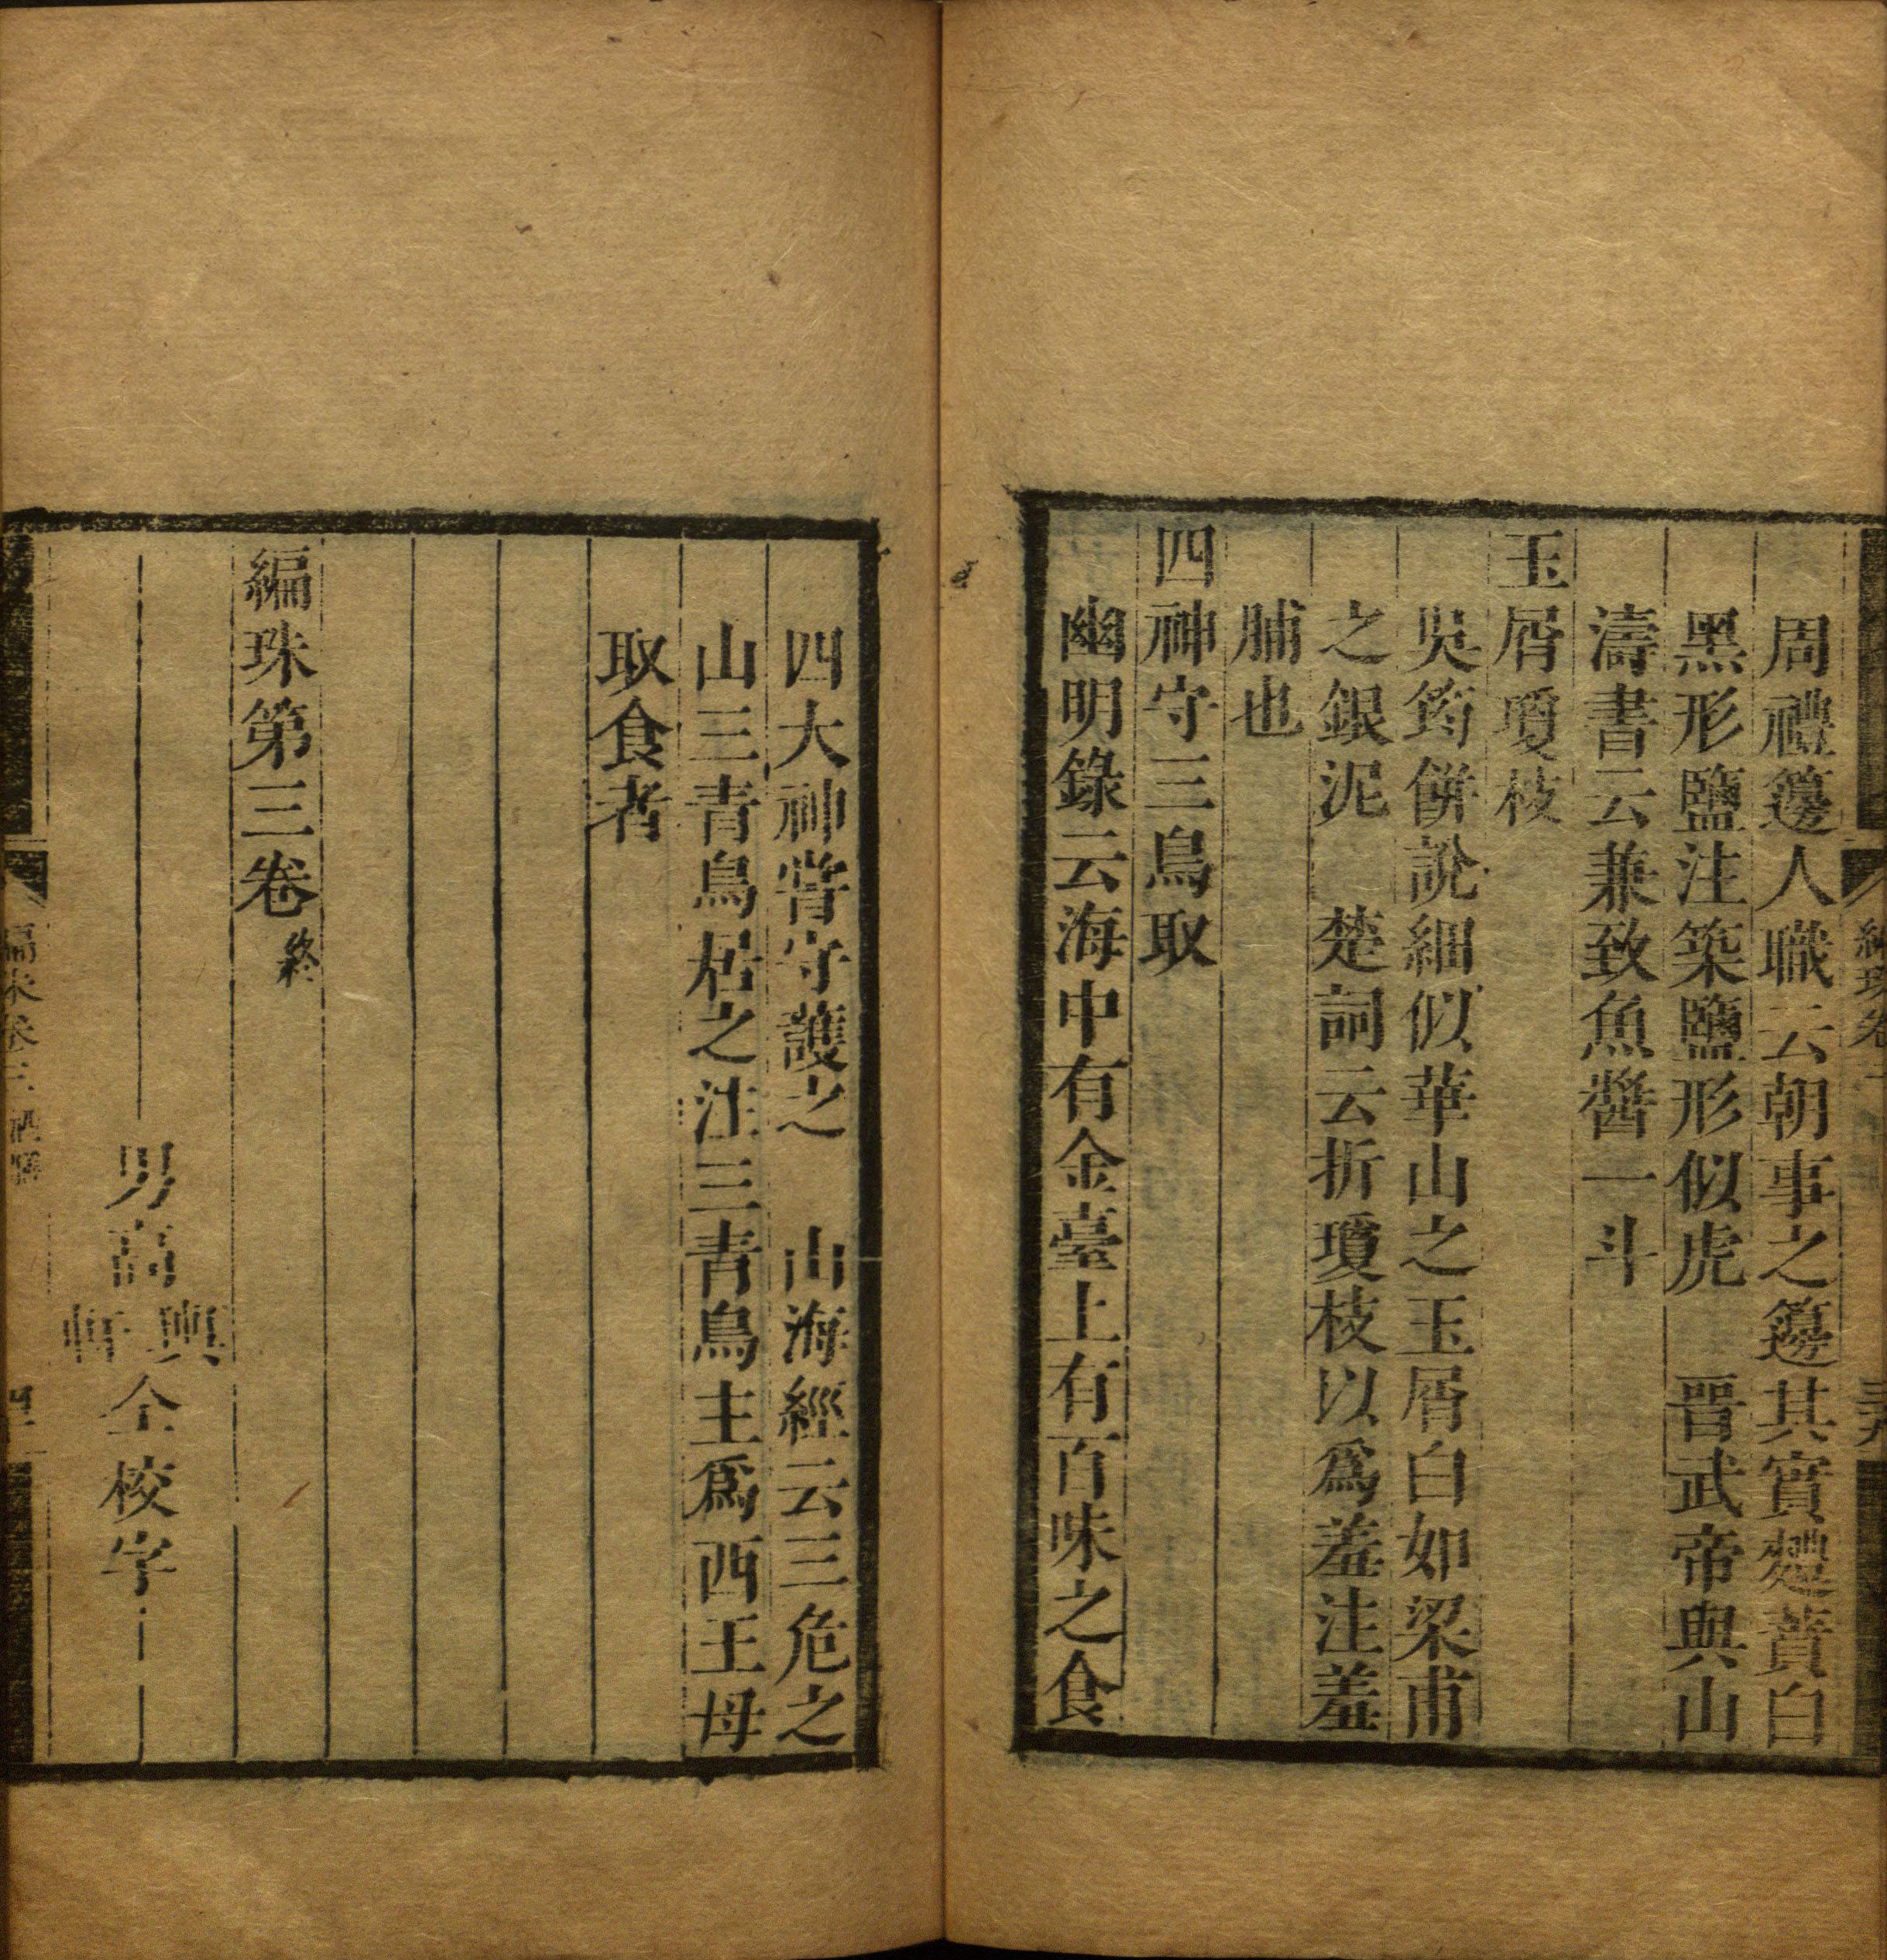 周禮籩人職云朝事之籩其實麷蕡白
黑形鹽注築鹽形似虎　晉武帝與山
濤書云兼致魚醬一斗
玉屑瓊枝
吳筠餅說細似華山之玉屑白如梁甫
之銀泥　楚詞云折瓊枝以爲羞注羞
脯也
四神守三鳥取
幽明錄云海中有金臺上有百味之食
四大神嘗守護之　山海經云三危之
山三青鳥居之注三青鳥主爲西王母
取食者
編珠第三卷終
男
輿
仝校字
編珠卷三